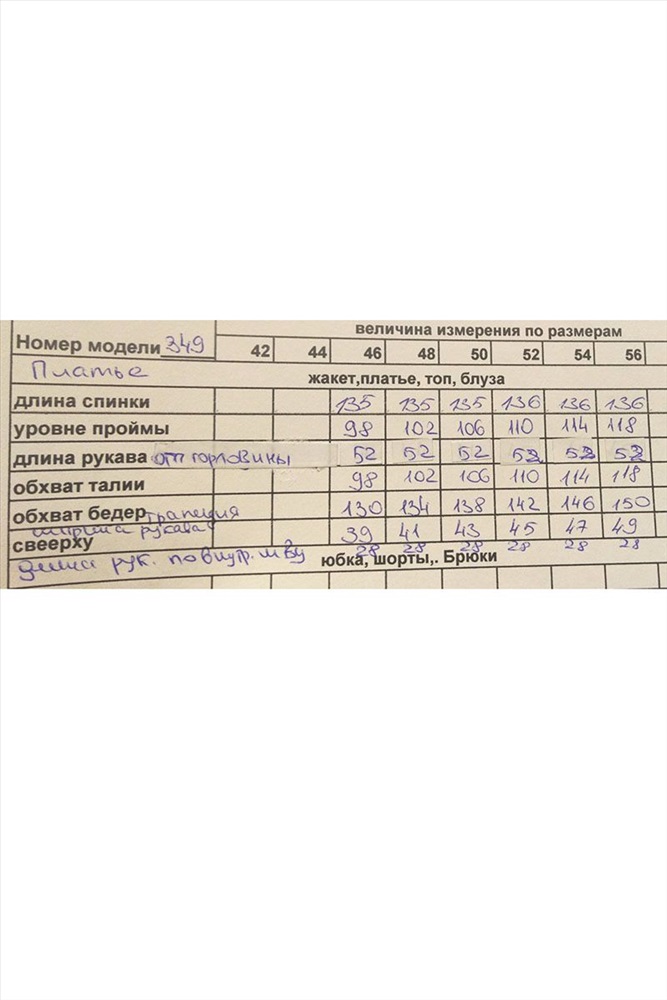 величина измерения по размерам
Номер модели 349 42 44 46 48 50 52 54 56
Платье жакет,платье, топ, блуза
длина спинки 135 135 135 136 136 136
уровне проймы 98 102 106 110 114 118
длина рукава от горловины 52 52 52 52 52 52
обхват талии 98 102 106 110 114 118
обхват бедер трапеция 130 134 138 142 146 150
ширина рукава
свеерху 39 41 43 45 47 49
длина рук. по внутр. шву 28 28 28 28 28 28
юбка, шорты,. Брюки